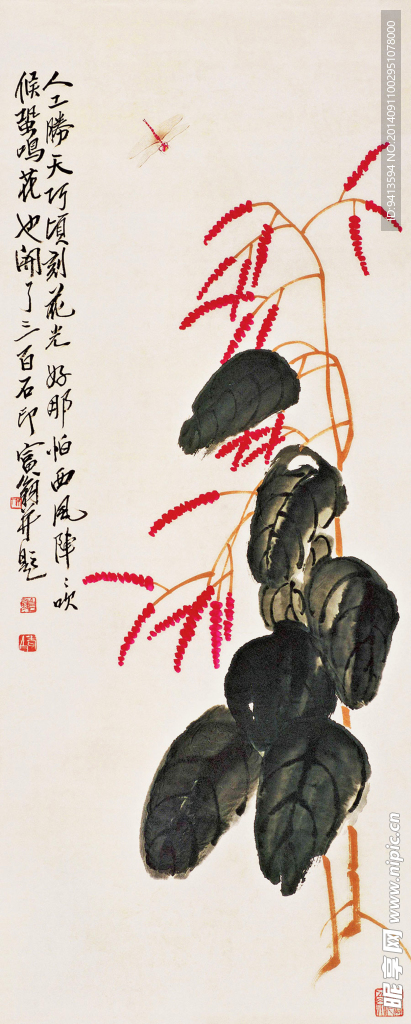 人工勝天巧頃刻花光好那怕西風陣〻吹
候蛩鳴花也開了三百石印富翁并題
ID:9413594 NO:20140911002951078000
昵享网 www.nipic.cn